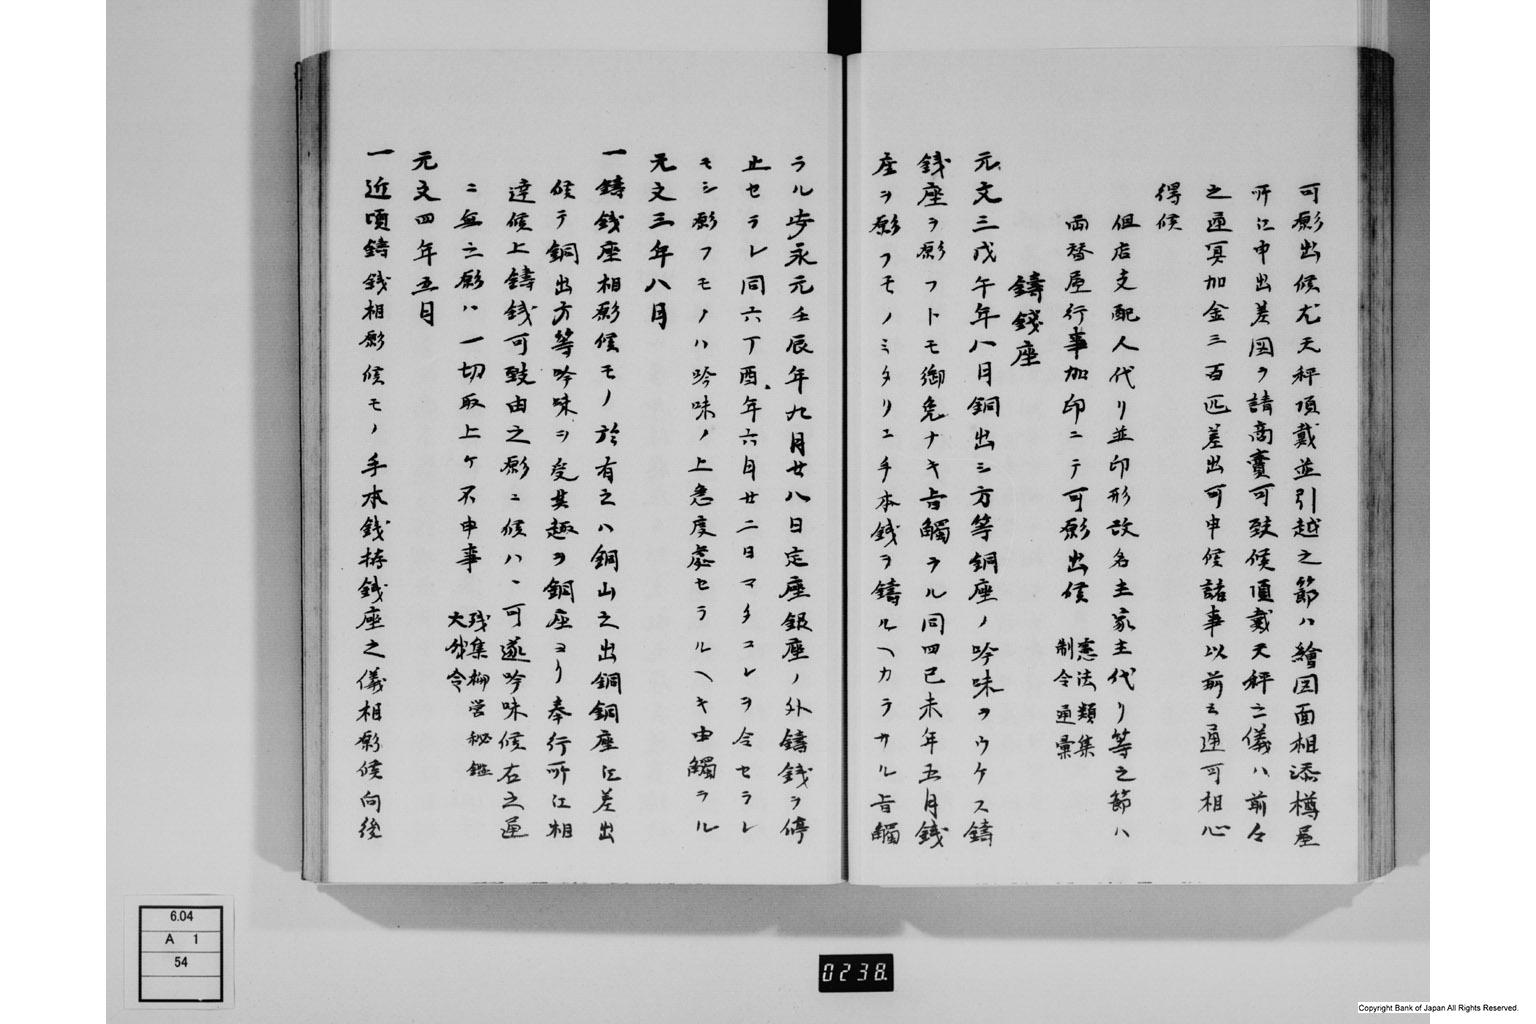 可願出候尤天秤頂戴並引越之節ハ繪図面相添樽屋
所江申出差図ヲ請商賣可致候頂戴天秤之儀ハ前々
之通冥加金三百匹差出可申候諸事以前之通可相心
得候
但店支配人代リ並印形改名主家主代リ等之節ハ
両替屋行事加印ニテ可願出候 憲法類集
制令通彙
鋳錢座
元文三戊午年八月銅出シ方等銅座ノ吟味ヲウケス鋳
錢座ヲ願フトモ御免ナキ旨觸ラル同四己未年五月錢
座ヲ願フモノミタリニ手本錢ヲ鋳ルヘカラサル旨觸
ラル安永元壬辰年九月廿八日定座銀座ノ外鋳錢ヲ停
止セラレ同六丁酉年六月廿二日マタコレヲ令セラレ
モシ願フモノハ吟味ノ上急度處セラルヘキ由觸ラル
元文三年八月
一鋳錢座相願候モノ於有之ハ銅山之出銅銅座江差出
候テ銅出方等吟味ヲ受其趣ヲ銅座ヨリ奉行所江相
達候上鋳錢可致由之願ニ候ハヽ可遂吟味候右之通
ニ無之願ハ一切取上ケ不申事 残集柳営秘鑑
大成令
元文四年五月
一近頃鋳錢相願候モノ手本錢持錢座之儀相願候向後
6.04
A 1
54
0238.
Copyright Bank of Japan All Rights Reserved.